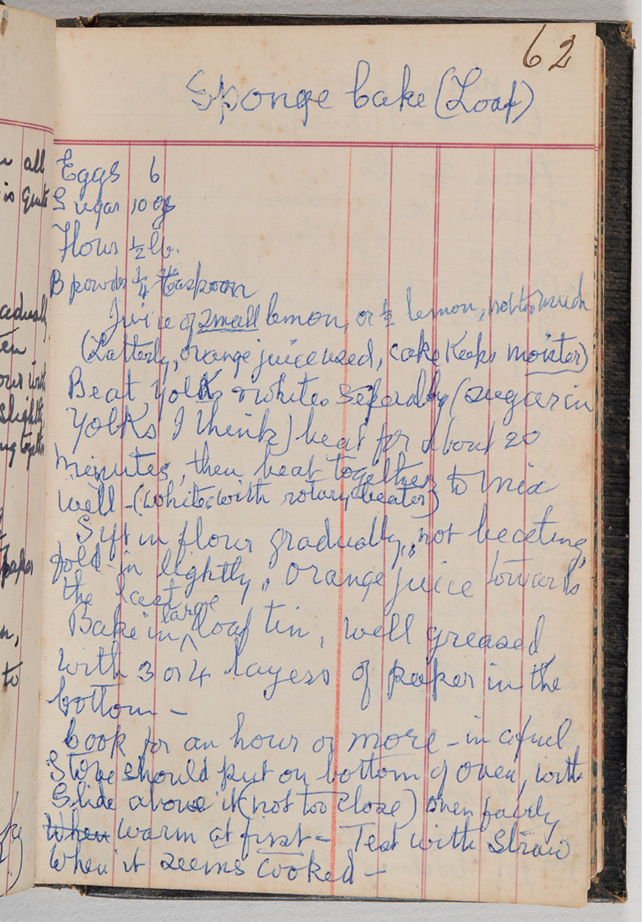 62
Sponge Cake (Loaf)
Eggs 6
Sugar 10 ozs
Flour ½ lb.
B powder ¼ teaspoon
Juice of small lemon, or ½ lemon, not too much
(Latterly, orange juice used, cake keeps moister)
Beat yolks & whites separately (sugar in
yolks I think) beat for about 20
minutes, then beat together to mix
well - (whites with rotary beater)
Sift in flour gradually, not beating,
fold in lightly, orange juice towards
the last
Bake in large loaf tin, well greased
with 3 or 4 layers of paper in the
bottom -
Cook for an hour or more - in a fuel
stove should put on bottom of oven, with
slide above it (not too close) oven fairly
When warm at first - Test with straw
when it seems cooked -
all
is quite
to